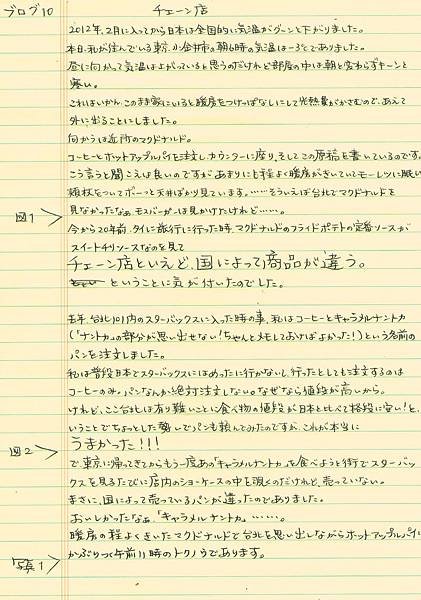 ブログ10
チェーン店
2012年、2月に入ってから日本は全国的に気温がグーンと下がりました。
本日、私が住んでいる東京、小金井市の朝6時の気温は-3℃でありました。
昼に向かって気温は上がっていると思うのだけれど部屋の中は朝と変わらずキーンと
寒い。
これはいかん、このまま家にいると暖房をつけっぱなしにして光熱量がかさむので、あえて
外に出ることにしました。
向かうは近所のマクドナルド。
コーヒーとホットアップルパイを注文し、カウンターに座り、そしてこの原稿を書いているのです。
こう言うと聞こえは良いのですが、あまりにも程よく暖房がきいていてモーレツに眠い
頬杖をついてボーっと天井ばかり見ています。……そういえば台北でマクドナルドを
図1
見なかったなぁ、モスバーガーは見かけたけれど……。
今から20年前、タイに旅行に行った時、マクドナルドのフライドポテトの定番ソースが
スイートチリソースなのを見て
チェーン店といえど、国によって商品が違う。
ということに気が付いたのでした。
去年、台北101内のスターバックスに入った時の事、私はコーヒーとキャラメルナントカ
(「ナントカ」の部分が思い出せない!ちゃんとメモしておけばよかった!)という名前の
パンを注文しました。
私は普段日本でスターバックスにはめったに行かないし、行ったとしても注文するのは
コーヒーのみ。パンなんか絶対注文しない。なぜなら値段が高いから。
けれど、ここ台北は有り難いことに食べ物の値段が日本と比べて格段に安い!と、
いうことでちょっとした勢いでパンも頼んでみたのですが、これが本当に
図2
うまかった!!!
で、東京に帰ってきてからもう一度あの「キャラメルナントカ」を食べようと街でスターバッ
クスを見るたびに店内のショーケースの中を覗くのだけれど、売っていない。
まさに、国によって売っているパンが違ったのでありました。
おいしかったなぁ、「キャラメルナントカ」……。
暖房の程よくきいたマクドナルドで台北を思い出しながらホットアップルパイに
写真1
かぶりつく午前11時のトクノウであります。